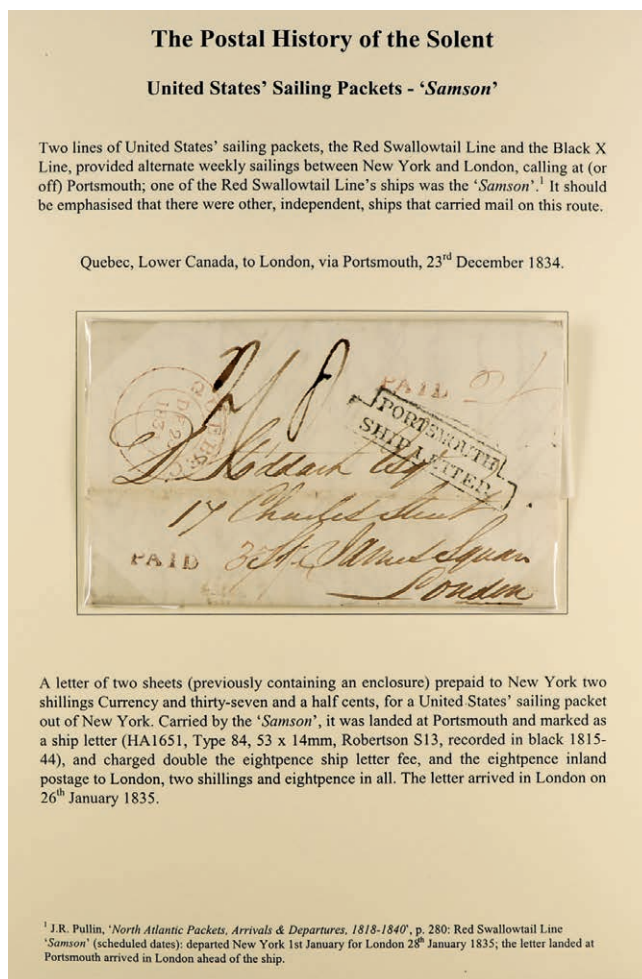 The Postal History of the Solent
United States' Sailing Packets - 'Samson'
Two lines of United States' sailing packets, the Red Swallowtail Line and the Black X
Line, provided alternate weekly sailings between New York and London, calling at (or
off) Portsmouth; one of the Red Swallowtail Line's ships was the 'Samson'.¹ It should
be emphasised that there were other, independent, ships that carried mail on this route.
Quebec, Lower Canada, to London, via Portsmouth, 23rd December 1834.
2/8
PAID 2/
PORTSMOUTH
SHIP LETTER
D. Stoddart Esq
17 Charles Street
PAID St. James Square
London
A letter of two sheets (previously containing an enclosure) prepaid to New York two
shillings Currency and thirty-seven and a half cents, for a United States' sailing packet
out of New York. Carried by the 'Samson', it was landed at Portsmouth and marked as
a ship letter (HA1651, Type 84, 53 x 14mm, Robertson S13, recorded in black 1815-
44), and charged double the eightpence ship letter fee, and the eightpence inland
postage to London, two shillings and eightpence in all. The letter arrived in London on
26th January 1835.
¹ J.R. Pullin, 'North Atlantic Packets, Arrivals & Departures, 1818-1840', p. 280: Red Swallowtail Line
'Samson' (scheduled dates): departed New York 1st January for London 28th January 1835; the letter landed at
Portsmouth arrived in London ahead of the ship.